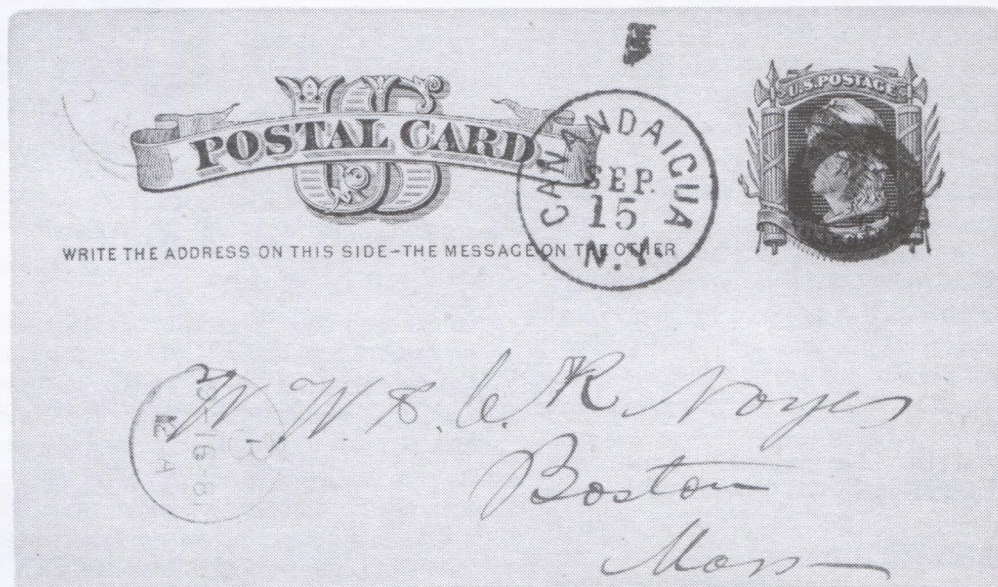 US
POSTAL CARD
WRITE THE ADDRESS ON THIS SIDE-THE MESSAGE ON THE OTHER
CANANDAIGUA
SEP.
15
N.Y.
U.S.POSTAGE
W. W. & C. R. Noyes
Boston
Mass